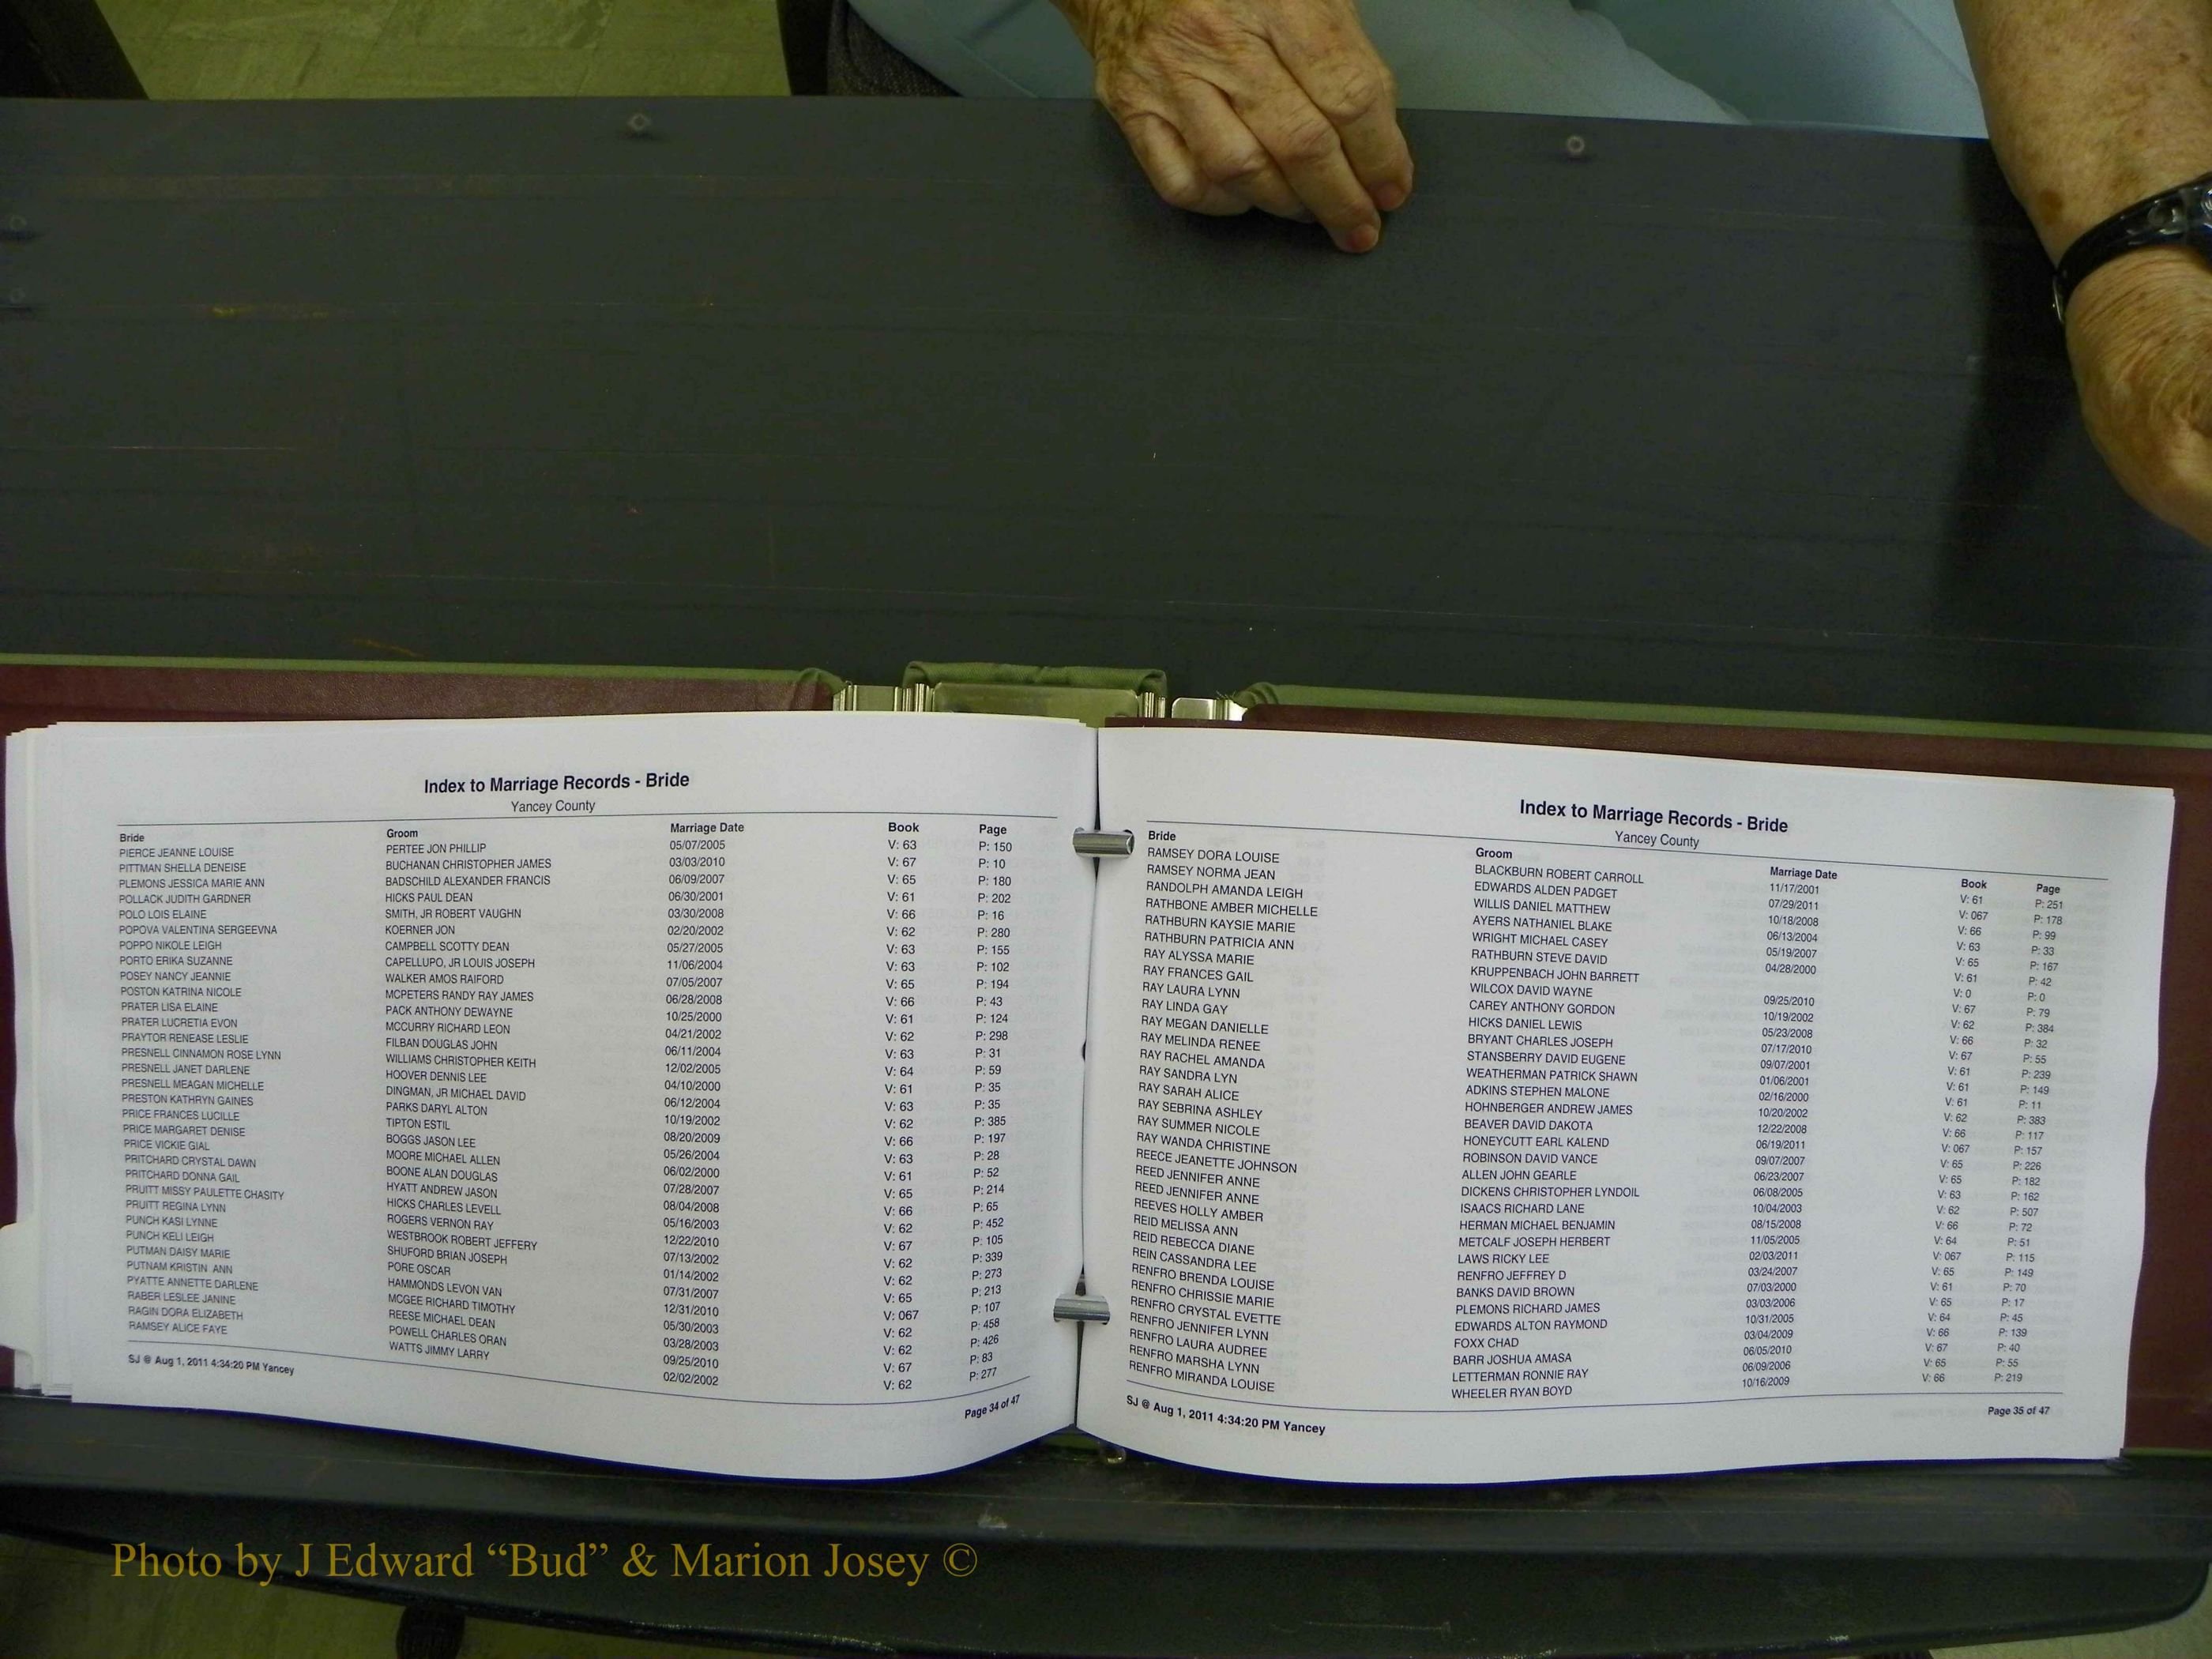 Index to Marriage Records - Bride
Yancey County
Bride Groom Marriage Date Book Page
PIERCE JEANNE LOUISE PERTEE JON PHILLIP 05/07/2005 V: 63 P: 150
PITTMAN SHELLA DENEISE BUCHANAN CHRISTOPHER JAMES 03/03/2010 V: 67 P: 10
PLEMONS JESSICA MARIE ANN BADSCHILD ALEXANDER FRANCIS 06/09/2007 V: 65 P: 180
POLLACK JUDITH GARDNER HICKS PAUL DEAN 06/30/2001 V: 61 P: 202
POLO LOIS ELAINE SMITH, JR ROBERT VAUGHN 03/30/2008 V: 66 P: 16
POPOVA VALENTINA SERGEEVNA KOERNER JON 02/20/2002 V: 62 P: 280
POPPO NIKOLE LEIGH CAMPBELL SCOTTY DEAN 05/27/2005 V: 63 P: 155
PORTO ERIKA SUZANNE CAPELLUPO, JR LOUIS JOSEPH 11/06/2004 V: 63 P: 102
POSEY NANCY JEANNIE WALKER AMOS RAIFORD 07/05/2007 V: 65 P: 194
POSTON KATRINA NICOLE MCPETERS RANDY RAY JAMES 06/28/2008 V: 66 P: 43
PRATER LISA ELAINE PACK ANTHONY DEWAYNE 10/25/2000 V: 61 P: 124
PRATER LUCRETIA EVON MCCURRY RICHARD LEON 04/21/2002 V: 62 P: 298
PRAYTOR RENEASE LESLIE FILBAN DOUGLAS JOHN 06/11/2004 V: 63 P: 31
PRESNELL CINNAMON ROSE LYNN WILLIAMS CHRISTOPHER KEITH 12/02/2005 V: 64 P: 59
PRESNELL JANET DARLENE HOOVER DENNIS LEE 04/10/2000 V: 61 P: 35
PRESNELL MEAGAN MICHELLE DINGMAN, JR MICHAEL DAVID 06/12/2004 V: 63 P: 35
PRESTON KATHRYN GAINES PARKS DARYL ALTON 10/19/2002 V: 62 P: 385
PRICE FRANCES LUCILLE TIPTON ESTIL 08/20/2009 V: 66 P: 197
PRICE MARGARET DENISE BOGGS JASON LEE 05/26/2004 V: 63 P: 28
PRICE VICKIE GIAL MOORE MICHAEL ALLEN 06/02/2000 V: 61 P: 52
PRITCHARD CRYSTAL DAWN BOONE ALAN DOUGLAS 07/28/2007 V: 65 P: 214
PRITCHARD DONNA GAIL HYATT ANDREW JASON 08/04/2008 V: 66 P: 65
PRUITT MISSY PAULETTE CHASITY HICKS CHARLES LEVELL 05/16/2003 V: 62 P: 452
PRUITT REGINA LYNN ROGERS VERNON RAY 12/22/2010 V: 67 P: 105
PUNCH KASI LYNNE WESTBROOK ROBERT JEFFERY 07/13/2002 V: 62 P: 339
PUNCH KELI LEIGH SHUFORD BRIAN JOSEPH 01/14/2002 V: 62 P: 273
PUTMAN DAISY MARIE PORE OSCAR 07/31/2007 V: 65 P: 213
PUTNAM KRISTIN ANN HAMMONDS LEVON VAN 12/31/2010 V: 067 P: 107
PYATTE ANNETTE DARLENE MCGEE RICHARD TIMOTHY 05/30/2003 V: 62 P: 458
RABER LESLEE JANINE REESE MICHAEL DEAN 03/28/2003 V: 62 P: 426
RAGIN DORA ELIZABETH POWELL CHARLES ORAN 09/25/2010 V: 67 P: 83
RAMSEY ALICE FAYE WATTS JIMMY LARRY 02/02/2002 V: 62 P: 277
SJ @ Aug 1, 2011 4:34:20 PM Yancey Page 34 of 47
Index to Marriage Records - Bride
Yancey County
Bride Groom Marriage Date Book Page
RAMSEY DORA LOUISE BLACKBURN ROBERT CARROLL 11/17/2001 V: 61 P: 251
RAMSEY NORMA JEAN EDWARDS ALDEN PADGET 07/29/2011 V: 067 P: 178
RANDOLPH AMANDA LEIGH WILLIS DANIEL MATTHEW 10/18/2008 V: 66 P: 99
RATHBONE AMBER MICHELLE AYERS NATHANIEL BLAKE 06/13/2004 V: 63 P: 33
RATHBURN KAYSIE MARIE WRIGHT MICHAEL CASEY 05/19/2007 V: 65 P: 167
RATHBURN PATRICIA ANN RATHBURN STEVE DAVID 04/28/2000 V: 61 P: 42
RAY ALYSSA MARIE KRUPPENBACH JOHN BARRETT V: 0 P: 0
RAY FRANCES GAIL WILCOX DAVID WAYNE 09/25/2010 V: 67 P: 79
RAY LAURA LYNN CAREY ANTHONY GORDON 10/19/2002 V: 62 P: 384
RAY LINDA GAY HICKS DANIEL LEWIS 05/23/2008 V: 66 P: 32
RAY MEGAN DANIELLE BRYANT CHARLES JOSEPH 07/17/2010 V: 67 P: 55
RAY MELINDA RENEE STANSBERRY DAVID EUGENE 09/07/2001 V: 61 P: 239
RAY RACHEL AMANDA WEATHERMAN PATRICK SHAWN 01/06/2001 V: 61 P: 149
RAY SANDRA LYN ADKINS STEPHEN MALONE 02/16/2000 V: 61 P: 11
RAY SARAH ALICE HOHNBERGER ANDREW JAMES 10/20/2002 V: 62 P: 383
RAY SEBRINA ASHLEY BEAVER DAVID DAKOTA 12/22/2008 V: 66 P: 117
RAY SUMMER NICOLE HONEYCUTT EARL KALEND 06/19/2011 V: 067 P: 157
RAY WANDA CHRISTINE ROBINSON DAVID VANCE 09/07/2007 V: 65 P: 226
REECE JEANETTE JOHNSON ALLEN JOHN GEARLE 06/23/2007 V: 65 P: 182
REED JENNIFER ANNE DICKENS CHRISTOPHER LYNDOIL 06/08/2005 V: 63 P: 162
REED JENNIFER ANNE ISAACS RICHARD LANE 10/04/2003 V: 62 P: 507
REEVES HOLLY AMBER HERMAN MICHAEL BENJAMIN 08/15/2008 V: 66 P: 72
REID MELISSA ANN METCALF JOSEPH HERBERT 11/05/2005 V: 64 P: 51
REID REBECCA DIANE LAWS RICKY LEE 02/03/2011 V: 067 P: 115
REIN CASSANDRA LEE RENFRO JEFFREY D 03/24/2007 V: 65 P: 149
RENFRO BRENDA LOUISE BANKS DAVID BROWN 07/03/2000 V: 61 P: 70
RENFRO CHRISSIE MARIE PLEMONS RICHARD JAMES 03/03/2006 V: 65 P: 17
RENFRO CRYSTAL EVETTE EDWARDS ALTON RAYMOND 10/31/2005 V: 64 P: 45
RENFRO JENNIFER LYNN FOXX CHAD 03/04/2009 V: 66 P: 139
RENFRO LAURA AUDREE BARR JOSHUA AMASA 06/05/2010 V: 67 P: 40
RENFRO MARSHA LYNN LETTERMAN RONNIE RAY 06/09/2006 V: 65 P: 55
RENFRO MIRANDA LOUISE WHEELER RYAN BOYD 10/16/2009 V: 66 P: 219
SJ @ Aug 1, 2011 4:34:20 PM Yancey Page 35 of 47
Photo by J Edward “Bud” & Marion Josey ©